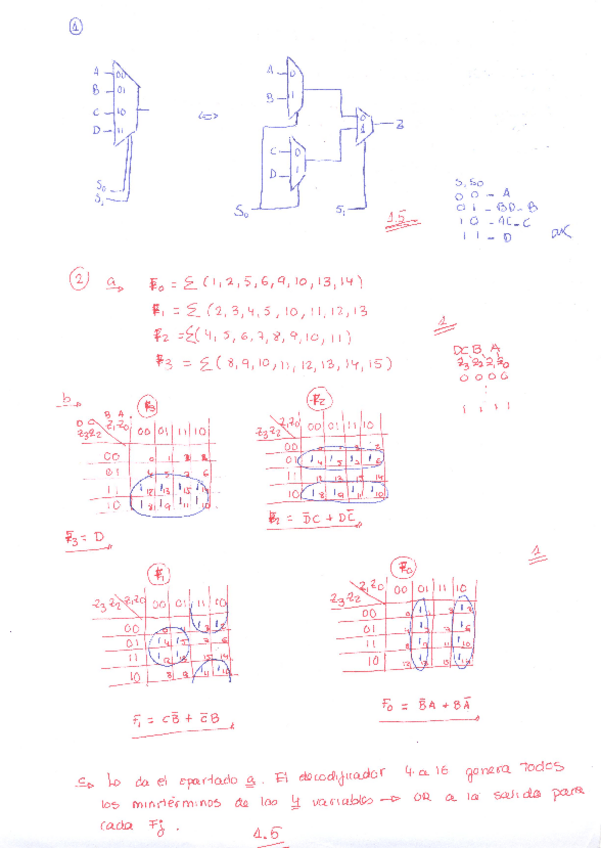 1
A 00
B 01
C 10
D 11
S₀
S₁
<=>
A 0
B 1
C 0
D 1
0
1
Z
S₀ S₁
1.5
S₁ S₀
0 0 - A
0 1 - BD - B
1 0 - AC - C
1 1 - D
OK
2 a) F₀ = Σ(1,2,5,6,9,10,13,14)
F₁ = Σ(2,3,4,5,10,11,12,13
F₂ = Σ(4,5,6,7,8,9,10,11)
F₃ = Σ(8,9,10,11,12,13,14,15)
1
D C B A
Z₃ Z₂ Z₁ Z₀
0 0 0 0
1 1 1 1
b)
F₃
D C B A
Z₃Z₂ Z₁Z₀ 00 01 11 10
00 0 1 3 2
01 4 5 7 6
11 1 12 1 13 1 15 1 14
10 1 8 1 9 1 11 1 10
F₃ = D
F₂
Z₃Z₂ Z₁Z₀ 00 01 11 10
00
01 1 4 1 5 1 7 1 6
11 12 13 15 14
10 1 8 1 9 1 11 1 10
F₂ = D̄C + DC̄
1
F₁
Z₃Z₂ Z₁Z₀ 00 01 11 10
00 0 1 1 3 1 2
01 1 4 1 5 7 6
11 1 12 1 13 15 14
10 8 9 1 11 1 10
F₁ = CB̄ + C̄B
F₀
Z₃Z₂ Z₁Z₀ 00 01 11 10
00
01
11
10
F₀ = B̄A + BĀ
c) Lo da el apartado a. El decodificador 4 a 16 genera TODOS
los minitérminos de las 4 variables → OR a la salida para
cada Fj.
1.5